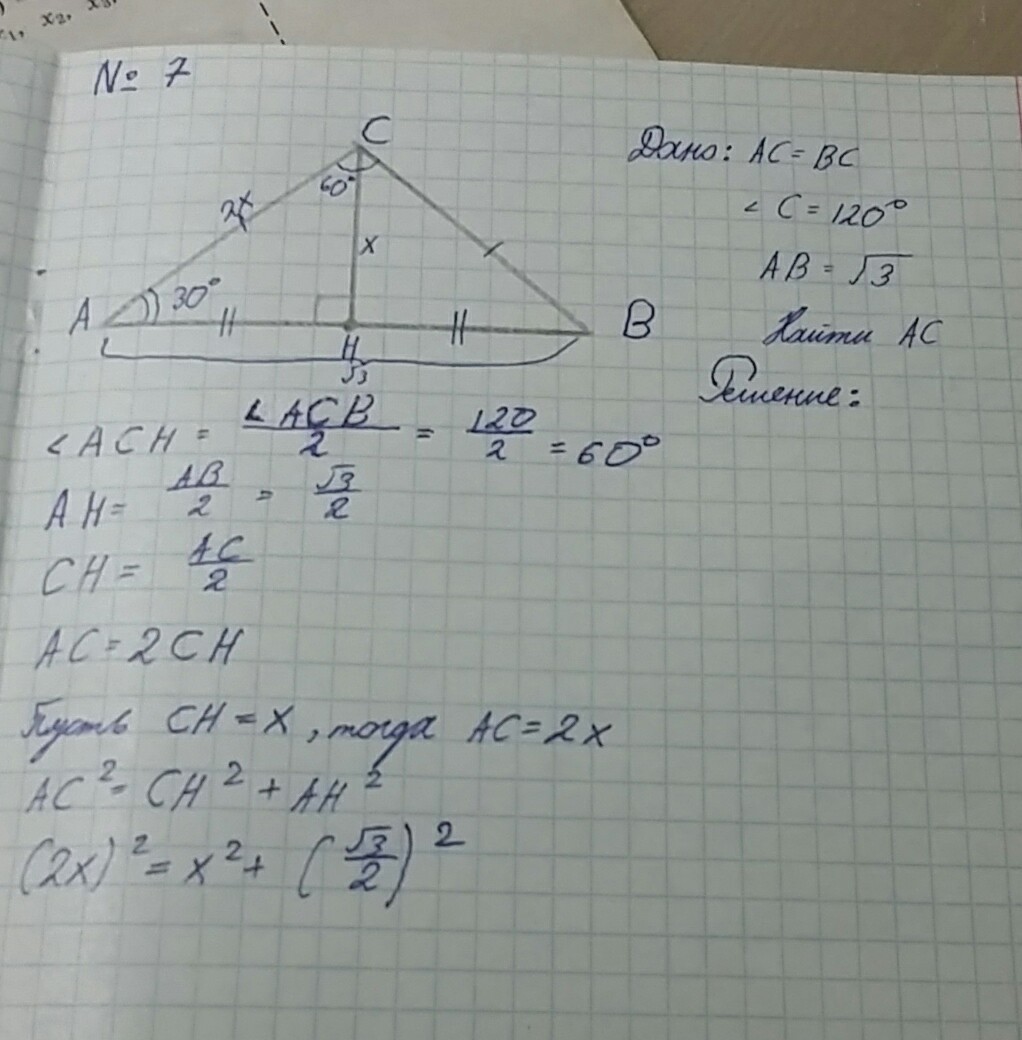 x₁, x₂, x₃,
№ 7
C
60°
2x
x
30°
A
B
H
√3
Дано: AC = BC
∠ C = 120°
AB = √3
Найти AC
Решение:
∠ ACH = ∠ ACB / 2 = 120 / 2 = 60°
AH = AB / 2 = √3 / 2
CH = AC / 2
AC = 2CH
Пусть CH = x, тогда AC = 2x
AC² = CH² + AH²
(2x)² = x² + (√3 / 2)²